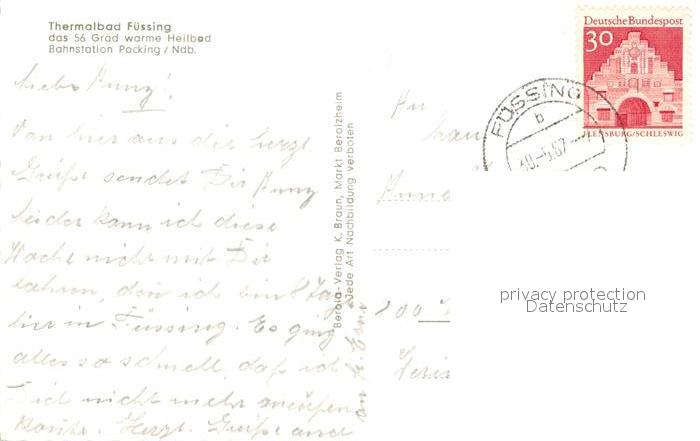 Thermalbad Füssing
das 56 Grad warme Heilbad
Bahnstation Pocking / Ndb.
Von hier aus die herzl.
Grüße sendet Dir
leider kann ich diese
Woche nicht mit Dir
fahren, den ich bin 8 Tag
hier in Füssing. Es ging
alles so schnell, daß ich
Dich nicht mehr anrufen
konnte. Herzl. Grüße and
Berola-Verlag K. Braun, Markt Berolzheim
Jede Art Nachbildung verboten
An
Deutsche Bundespost
30
FLENSBURG/SCHLESWIG
FÜSSING
b
privacy protection
Datenschutz